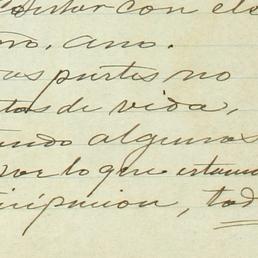 con el
mo. ano.
as partes no
tos de vida,
ando algunos
por lo que estamos
cipacion, tod